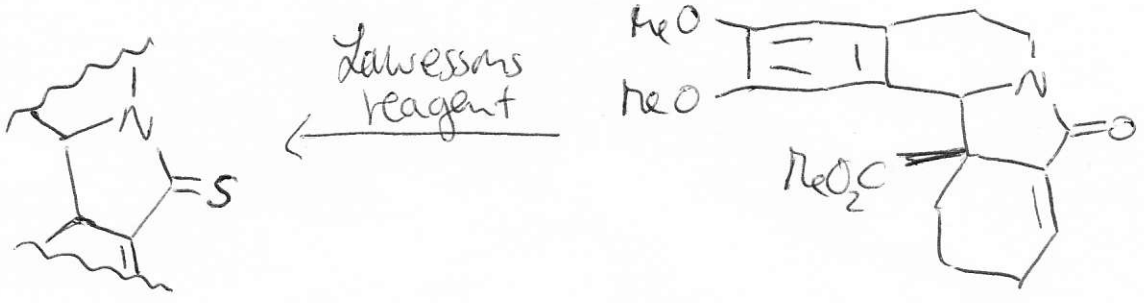 Lawessons
reagent
N
S
MeO
MeO
N
O
MeO₂C